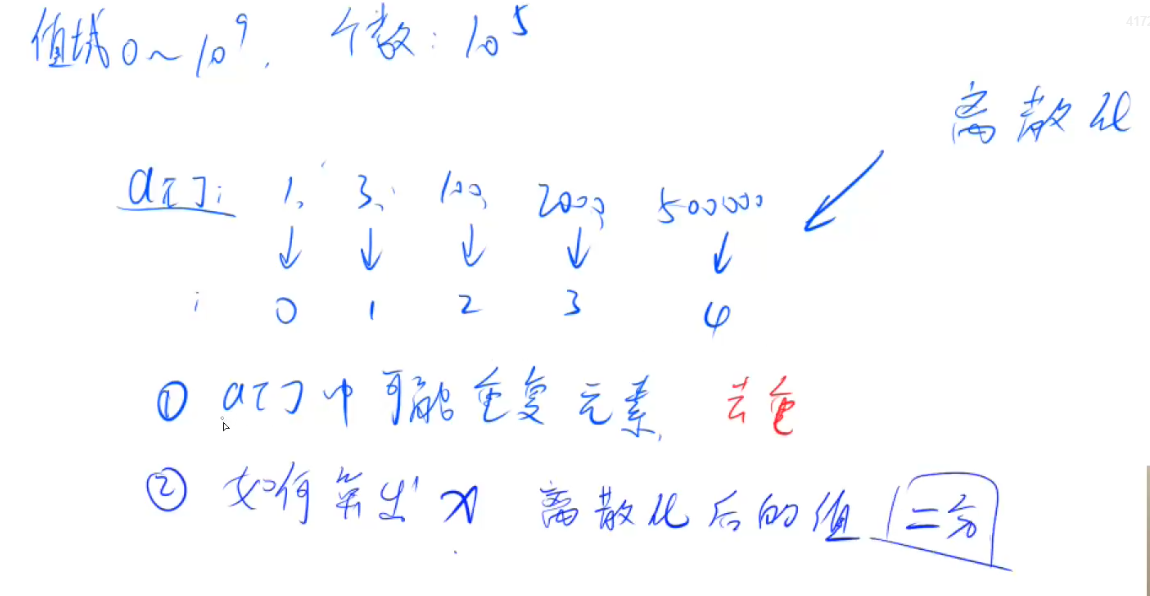 值域 0~10^9. 个数: 10^5
离散化
a[]: 1, 3, 100, 2000, 500000
↓ ↓ ↓ ↓ ↓
i 0 1 2 3 4
① a[]中可能重复元素 去重
② 如何算出 x 离散化后的值 二分